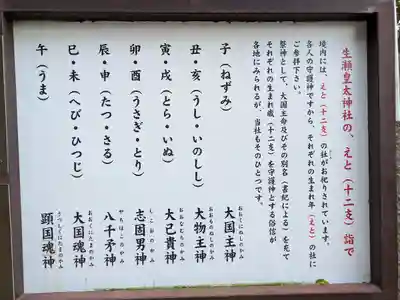 生瀬皇太神社の、えと(十二支)詣で
境内には、えと(十二支)の社がお祀りされています。
各人の守護神ですから、それぞれの生まれ年(えと)の社に
ご参拝下さい。
祭神として、大国主命及びその別名(書紀による)を充て
それぞれの生まれ歳(十二支)を守護神とする俗信が
各地にみられるが、当社もそのひとつです。
子(ねずみ) 大国主神 おおくにぬしのかみ
丑・亥(うし・いのしし) 大物主神 おおものぬしのかみ
寅・戌(とら・いぬ) 大己貴神 おおなむちのかみ
卯・酉(うさぎ・とり) 志固男神 しこおのかみ
辰・申(たつ・さる) 八千矛神 やちほこのかみ
巳・未(へび・ひつじ) 大国魂神 おおくにたまのかみ
午(うま) 顕国魂神 うつしくにたまのかみ